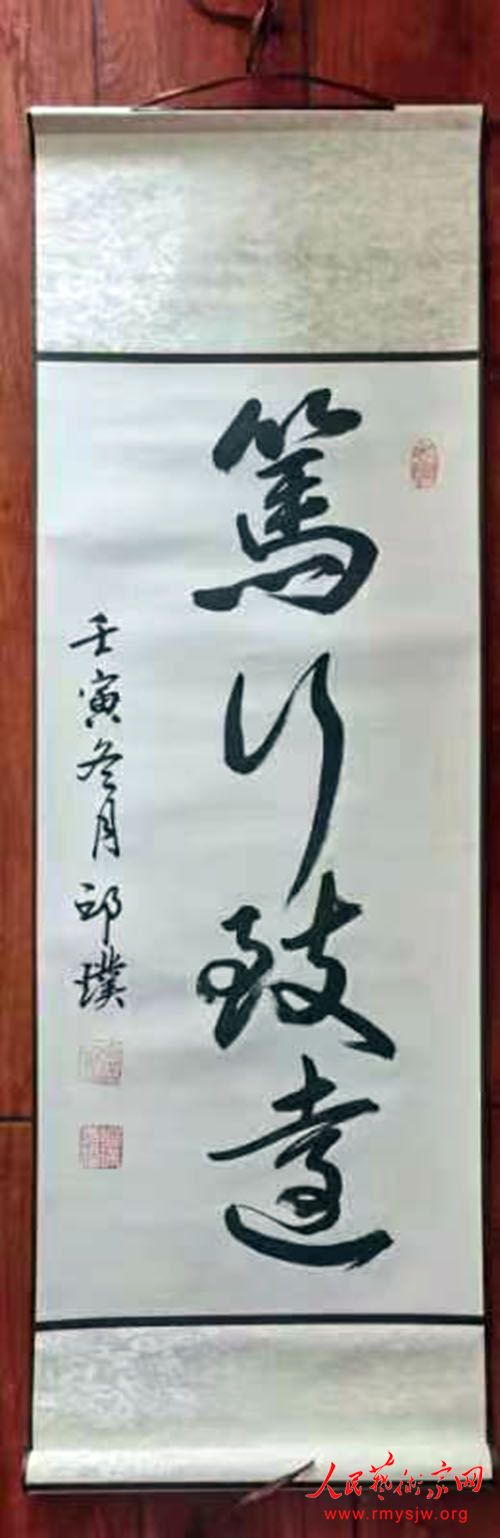 篤行致遠
壬寅冬月 邱璞
人民藝術家网
www.rmysjw.org